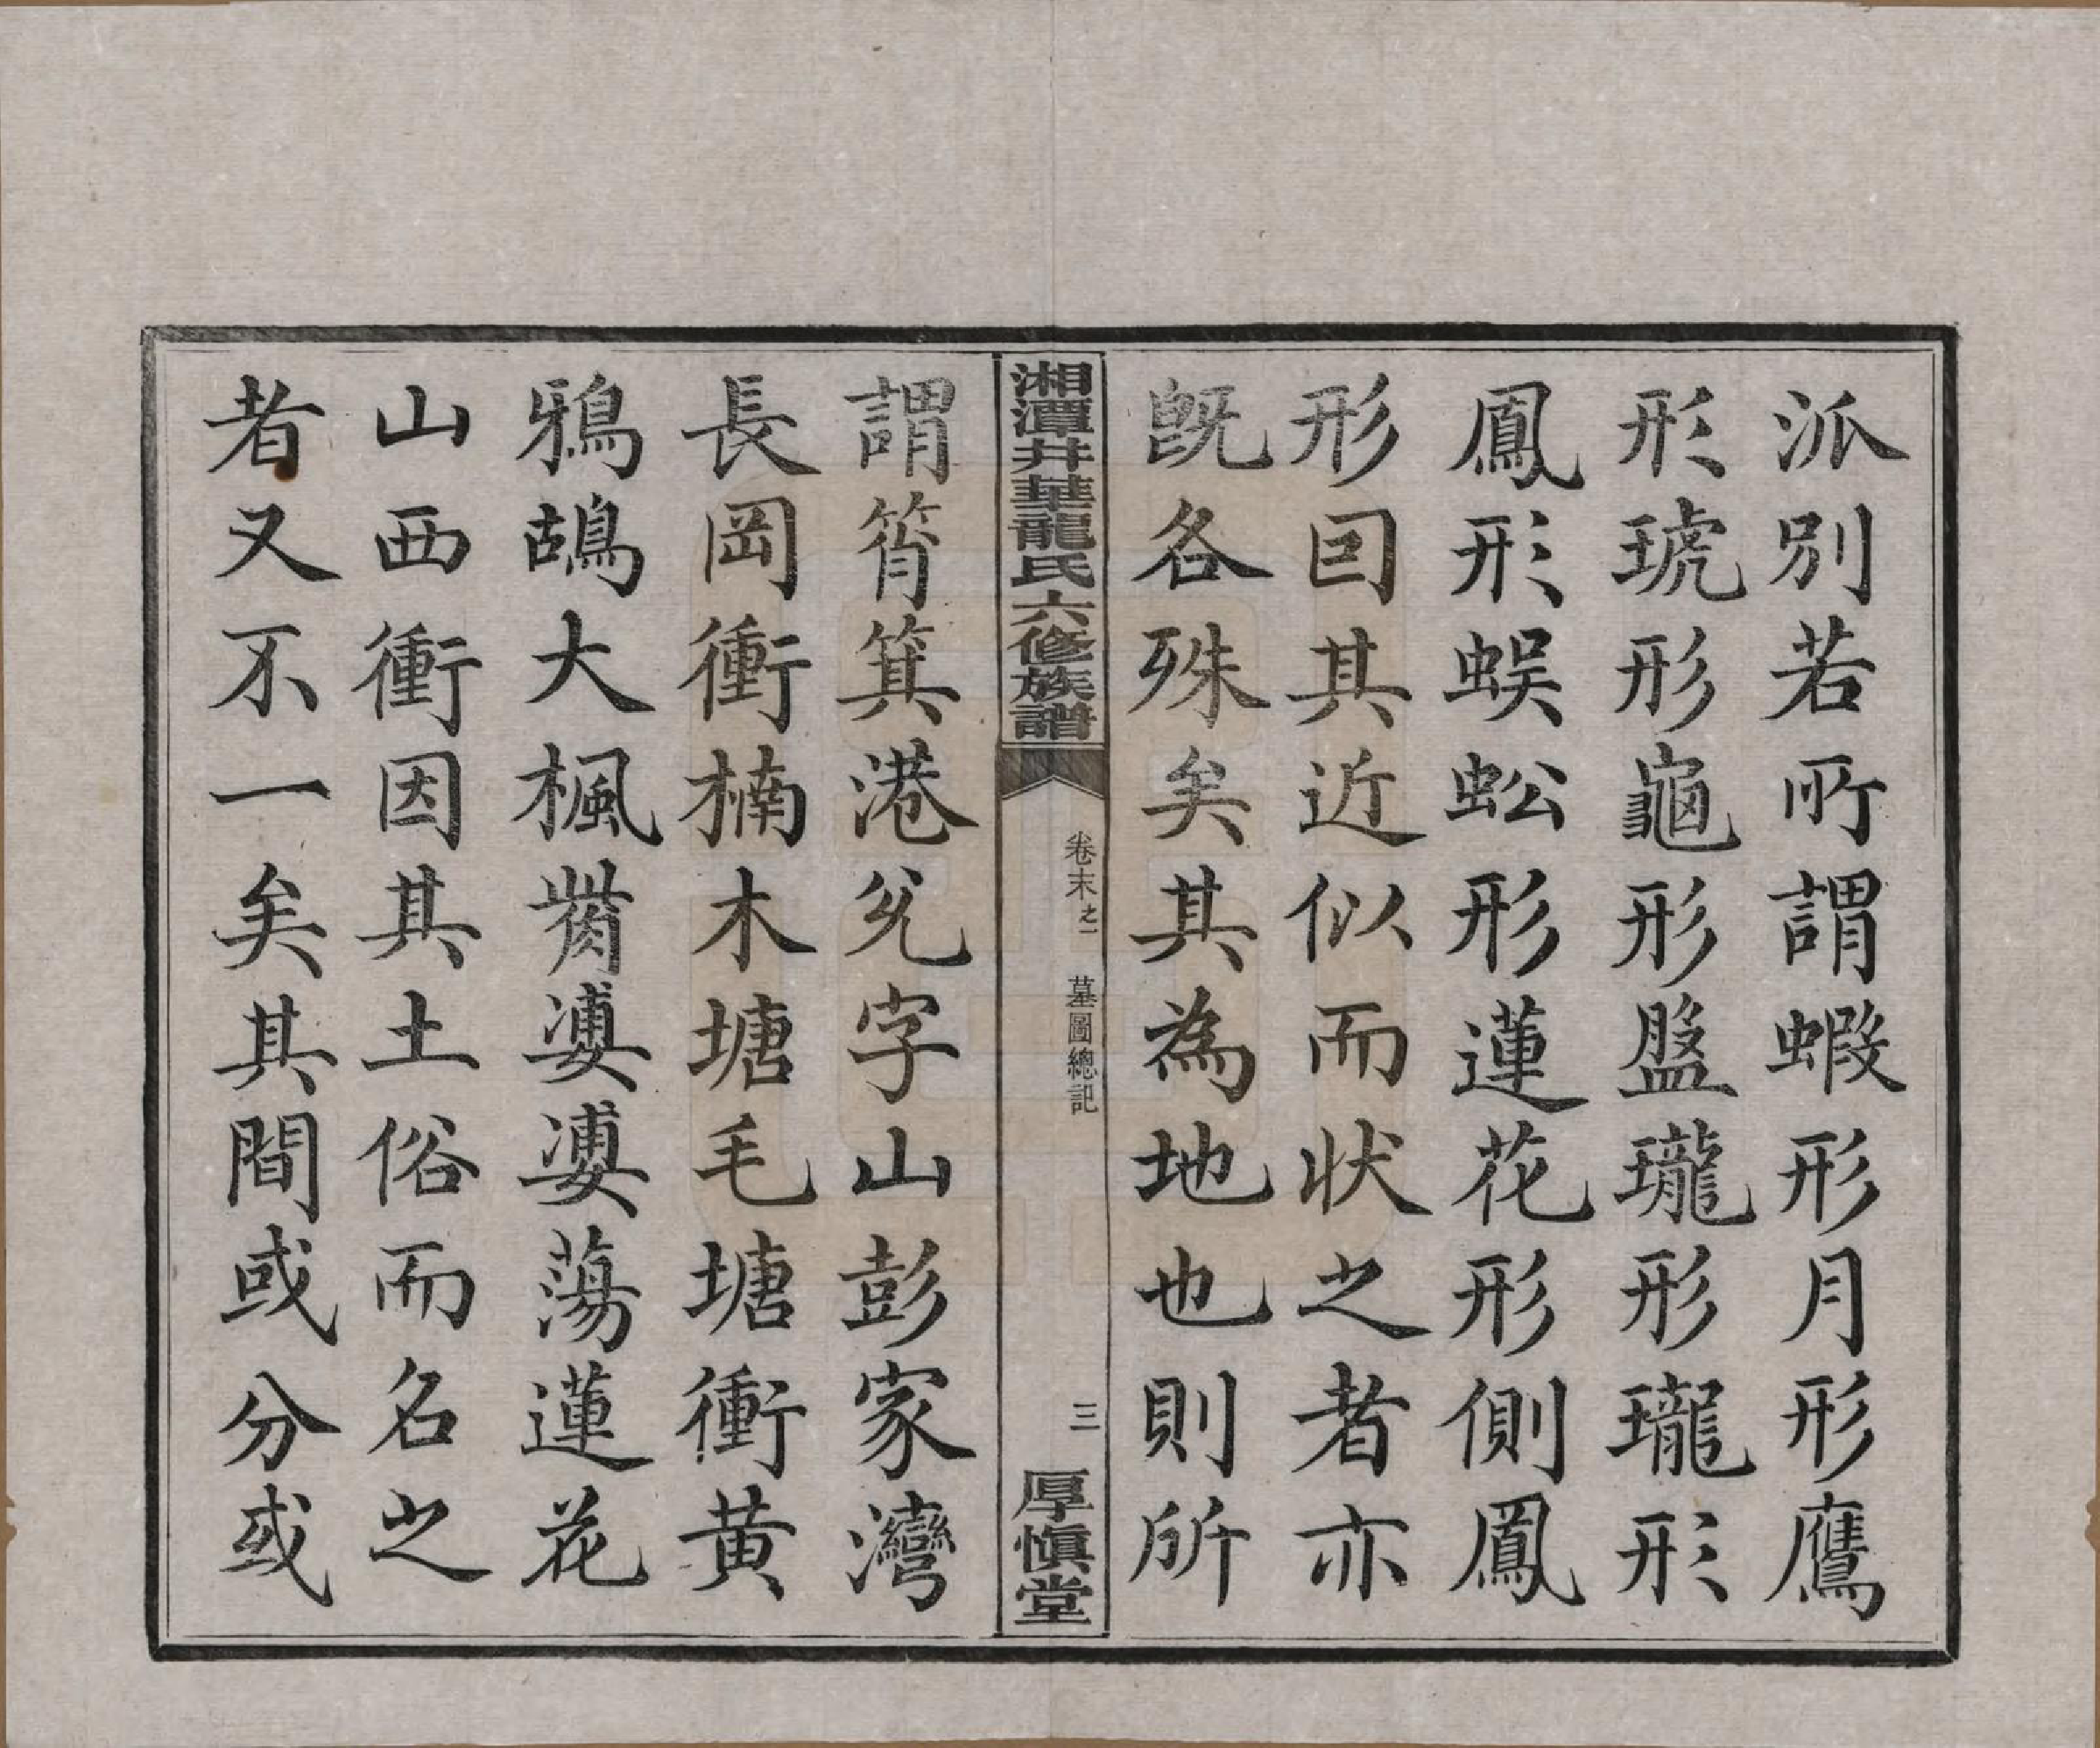 派別若所謂蝦形月形鷹
形琥形龜形盤瓏形瓏形
鳳形蜈蚣形蓮花形側鳳
形囙其近似而状之者亦
既各殊矣其為地也則所
湘潭井華龍氏六修族譜
卷末之一
墓圖總記
三
厚愼堂
謂筲箕港兊字山彭家灣
長岡衝楠木塘毛塘衝黄
鴉鴣大楓觜婆婆蕩蓮花
山西衝因其土俗而名之
者又不一矣其間或分或